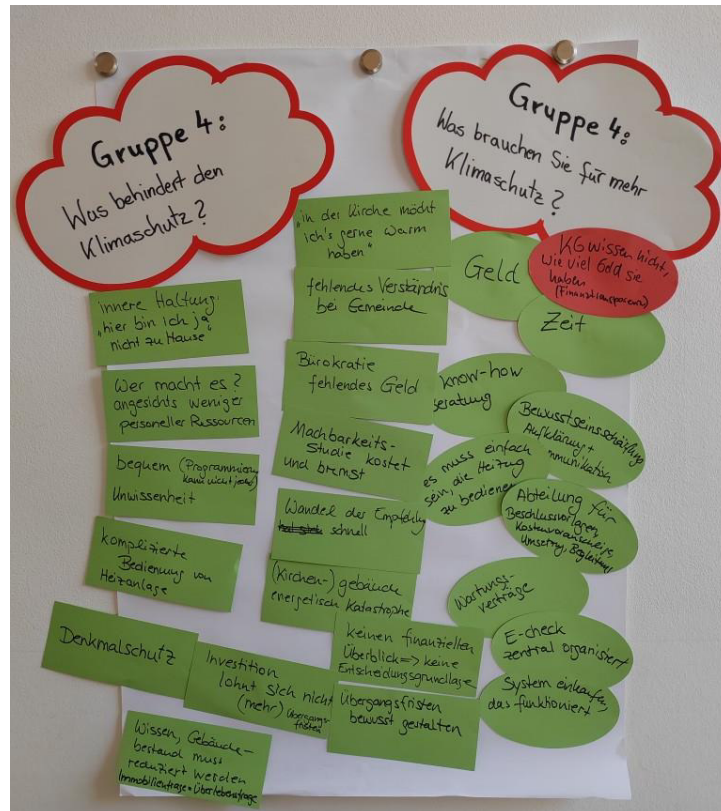 Gruppe 4:
Was behindert den
Klimaschutz?
innere Haltung:
"hier bin ich ja
nicht zu Hause"
Wer macht es?
angesichts weniger
personeller Ressourcen
bequem (Programmierung
kann nicht jede/r)
Unwissenheit
komplizierte
Bedienung von
Heizanlage
Denkmalschutz
Investition
lohnt sich nicht
(mehr) Übergangs-
fristen
Wissen, Gebäude-
bestand muss
reduziert werden
Immobilienfrage = Überlebensfrage
"in der Kirche möcht
ich's gerne warm
haben"
fehlendes Verständnis
bei Gemeinde
Bürokratie
fehlendes Geld
Machbarkeits-
Studie kostet
und bremst
Wandel der Empfehlung
schnell
(Kirchen-)gebäude
energetisch Katastrophe
keinen finanziellen
Überblick => keine
Entscheidungsgrundlage
Übergangsfristen
bewusst gestalten
Gruppe 4:
Was brauchen Sie für mehr
Klimaschutz?
Geld
KG wissen nicht,
wie viel Geld sie
haben
(Finanztransparenz)
Zeit
know-how
Beratung
Bewusstseinsschärfung
Aufklärung +
es muss einfach
sein, die Heizug
zu bedienen
Abteilung für
Beschlussvorlagen,
Kostenvoranschläge,
Umsetzung, Begleitung
Wartungs-
verträge
E-check
zentral organisiert
System einkaufen,
das funktioniert